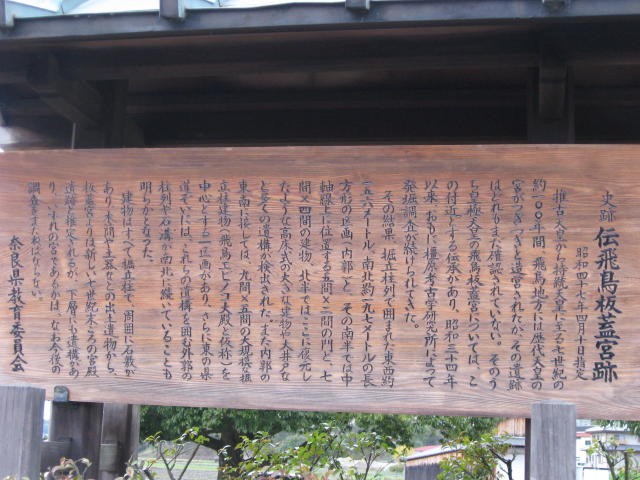 史跡 伝飛鳥板蓋宮跡
昭和四十七年四月十日指定
推古天皇から持統天皇に至る七世紀の
約一〇〇年間、飛鳥地方には歴代天皇の
宮がつぎつぎと造営されたが、その遺跡
はいずれもまだ確認されていない。そのう
ち皇極天皇の飛鳥板蓋宮については、こ
の付近とする伝承があり、昭和三十四年
以来、おもに橿原考古学研究所によって
発掘調査が続けられてきた。
その結果、掘立柱列で囲まれた東西約
一五六メートル、南北約一九七メートルの長
方形の区画(内郭)と、その南半では中
軸線上に位置する五間×二間の門と、七
間×四間の建物、北半ではここに復元し
たような高床式の大きな建物や大井戸な
どとその遺構が検出された。また内郭の
東南に接しては、九間×五間の大規模な掘
立柱建物(飛鳥でエビノコ大殿と仮称)を
中心とする一区画があり、さらに東の県
道ぞいには、これらの遺構を囲む外郭の
柱列や石溝が南北に続いていることも
明らかとなった。
建物はすべて掘立柱で、周囲に石敷が
あり、木簡や土器などの出土遺物から、
板蓋宮よりは新しい七世紀末ごろの宮殿
遺跡と推定されるが、下層にも遺構があ
り、いずれの宮であるかは、なお今後の
調査をまたねばならない。
奈良県教育委員会